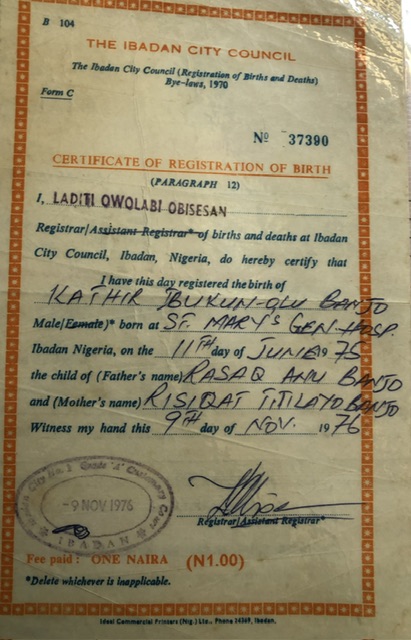 B 104
THE IBADAN CITY COUNCIL
The Ibadan City Council (Registration of Births and Deaths)
Bye-laws, 1970
Form C
No 37390
CERTIFICATE OF REGISTRATION OF BIRTH
(PARAGRAPH 12)
I, LADITI OWOLABI OBISESAN
Registrar/Assistant Registrar* of births and deaths at Ibadan
City Council, Ibadan, Nigeria, do hereby certify that
I have this day registered the birth of
KATHIR IBUKUN-OLU BANJO
Male/Female)* born at ST. MARY'S GEN. HOSP.
Ibadan Nigeria, on the 11TH day of JUNE 1975
the child of (Father's name) RASAQ ANU BANJO
and (Mother's name) RISIQAT TITILAYO BANJO
Witness my hand this 9TH day of NOV. 1976
Ibadan City No. 3 Grade 'A' Customary Court
-9 NOV 1976
IBADAN
Registrar/Assistant Registrar*
Fee paid : ONE NAIRA (N1.00)
*Delete whichever is inapplicable.
Ideal Commercial Printers (Nig.) Ltd., Phone 24369, Ibadan.